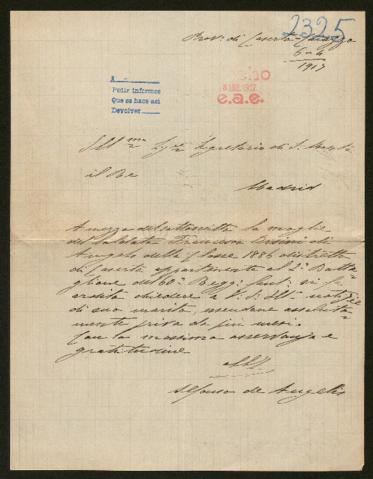 2325
Prov. di Caserta
6-4
1917
A
Pedir informes
Que se hace así
Devolver
e.a.e.
Ill.mo Sig.re Segretario di S. Maestà
il Re
Madrid
A mezzo del sottoscritto la moglie
del soldato Francesco di
Angelo della classe 1886 distretto
di Caserta appartenente al 2° Batta
glione del 60° Regg. fant. si fa
ardita chiedere a V. S. Ill. notizie
di suo marito, essendone assoluta-
mente priva da più mesi.
Con la massima osservanza e
gratitudine
Alfonso de Angelis